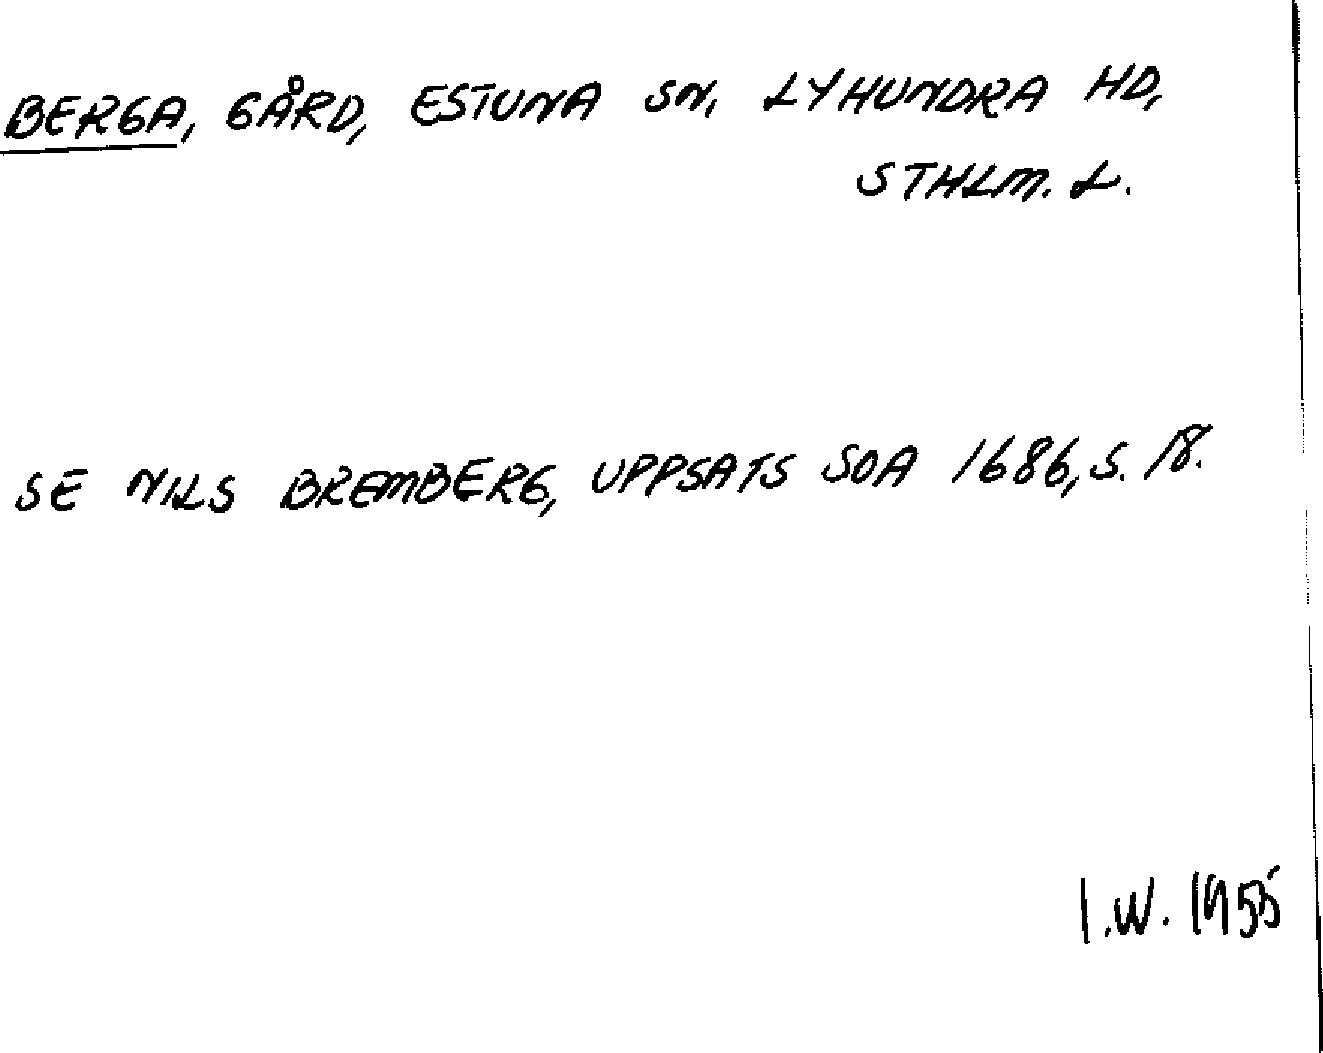 BERGA, GÅRD, ESTUNA SN, LYHUNDRA HD,
STHLM. L.
SE NILS BREMBERG, UPPSATS SOA 1686, S. 18.
I.W. 1955